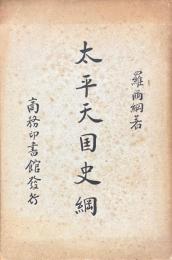 羅爾綱著
太平天国史綱
商務印書館發行